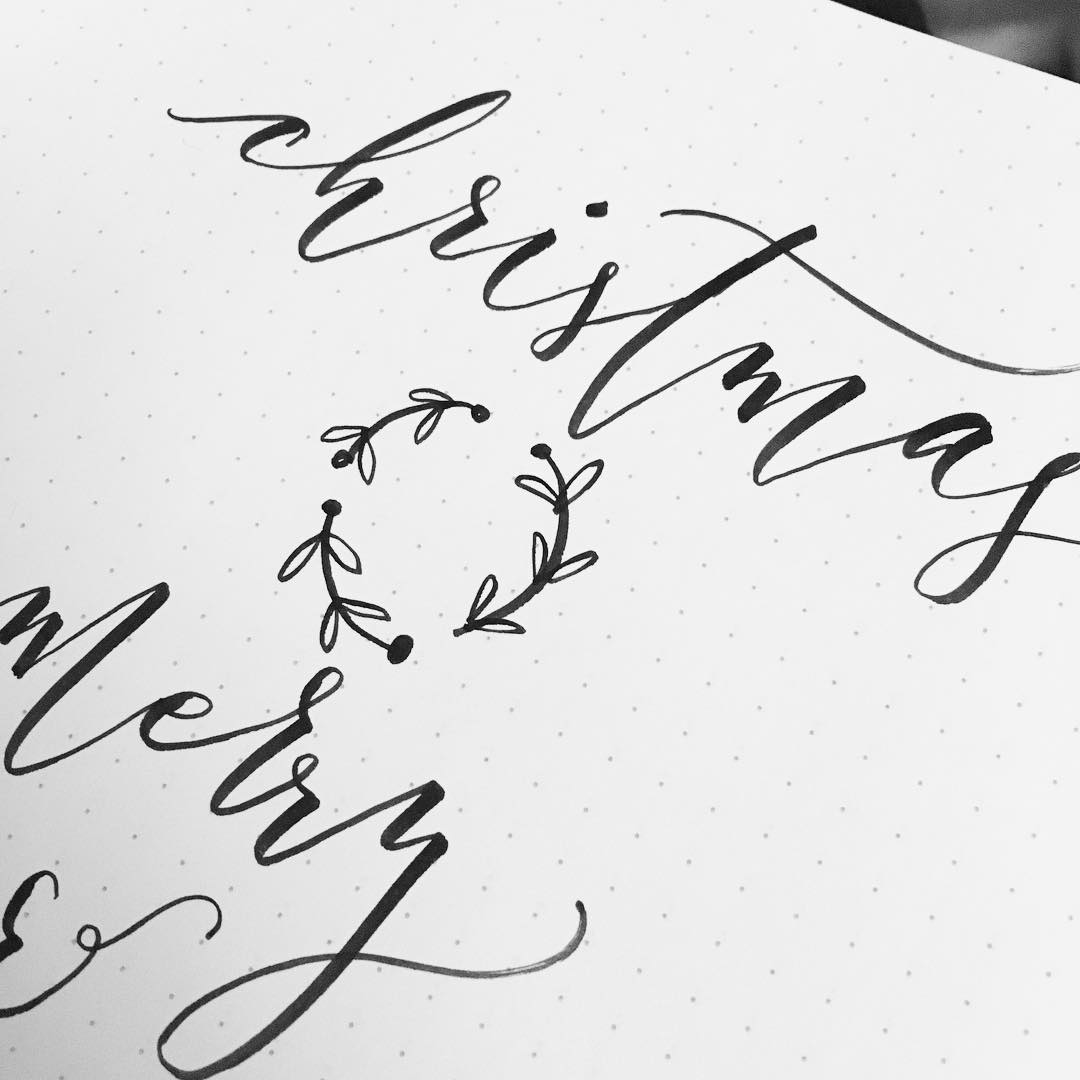 christmas
merry
&